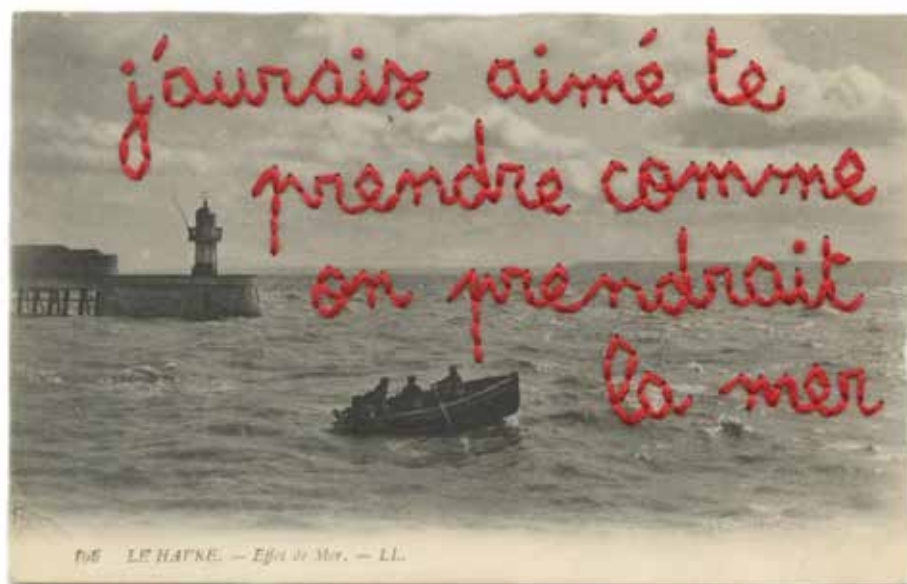 j'aurais aimé te
prendre comme
on prendrait
la mer
LE HAVRE. — Effet de Mer. — LL.